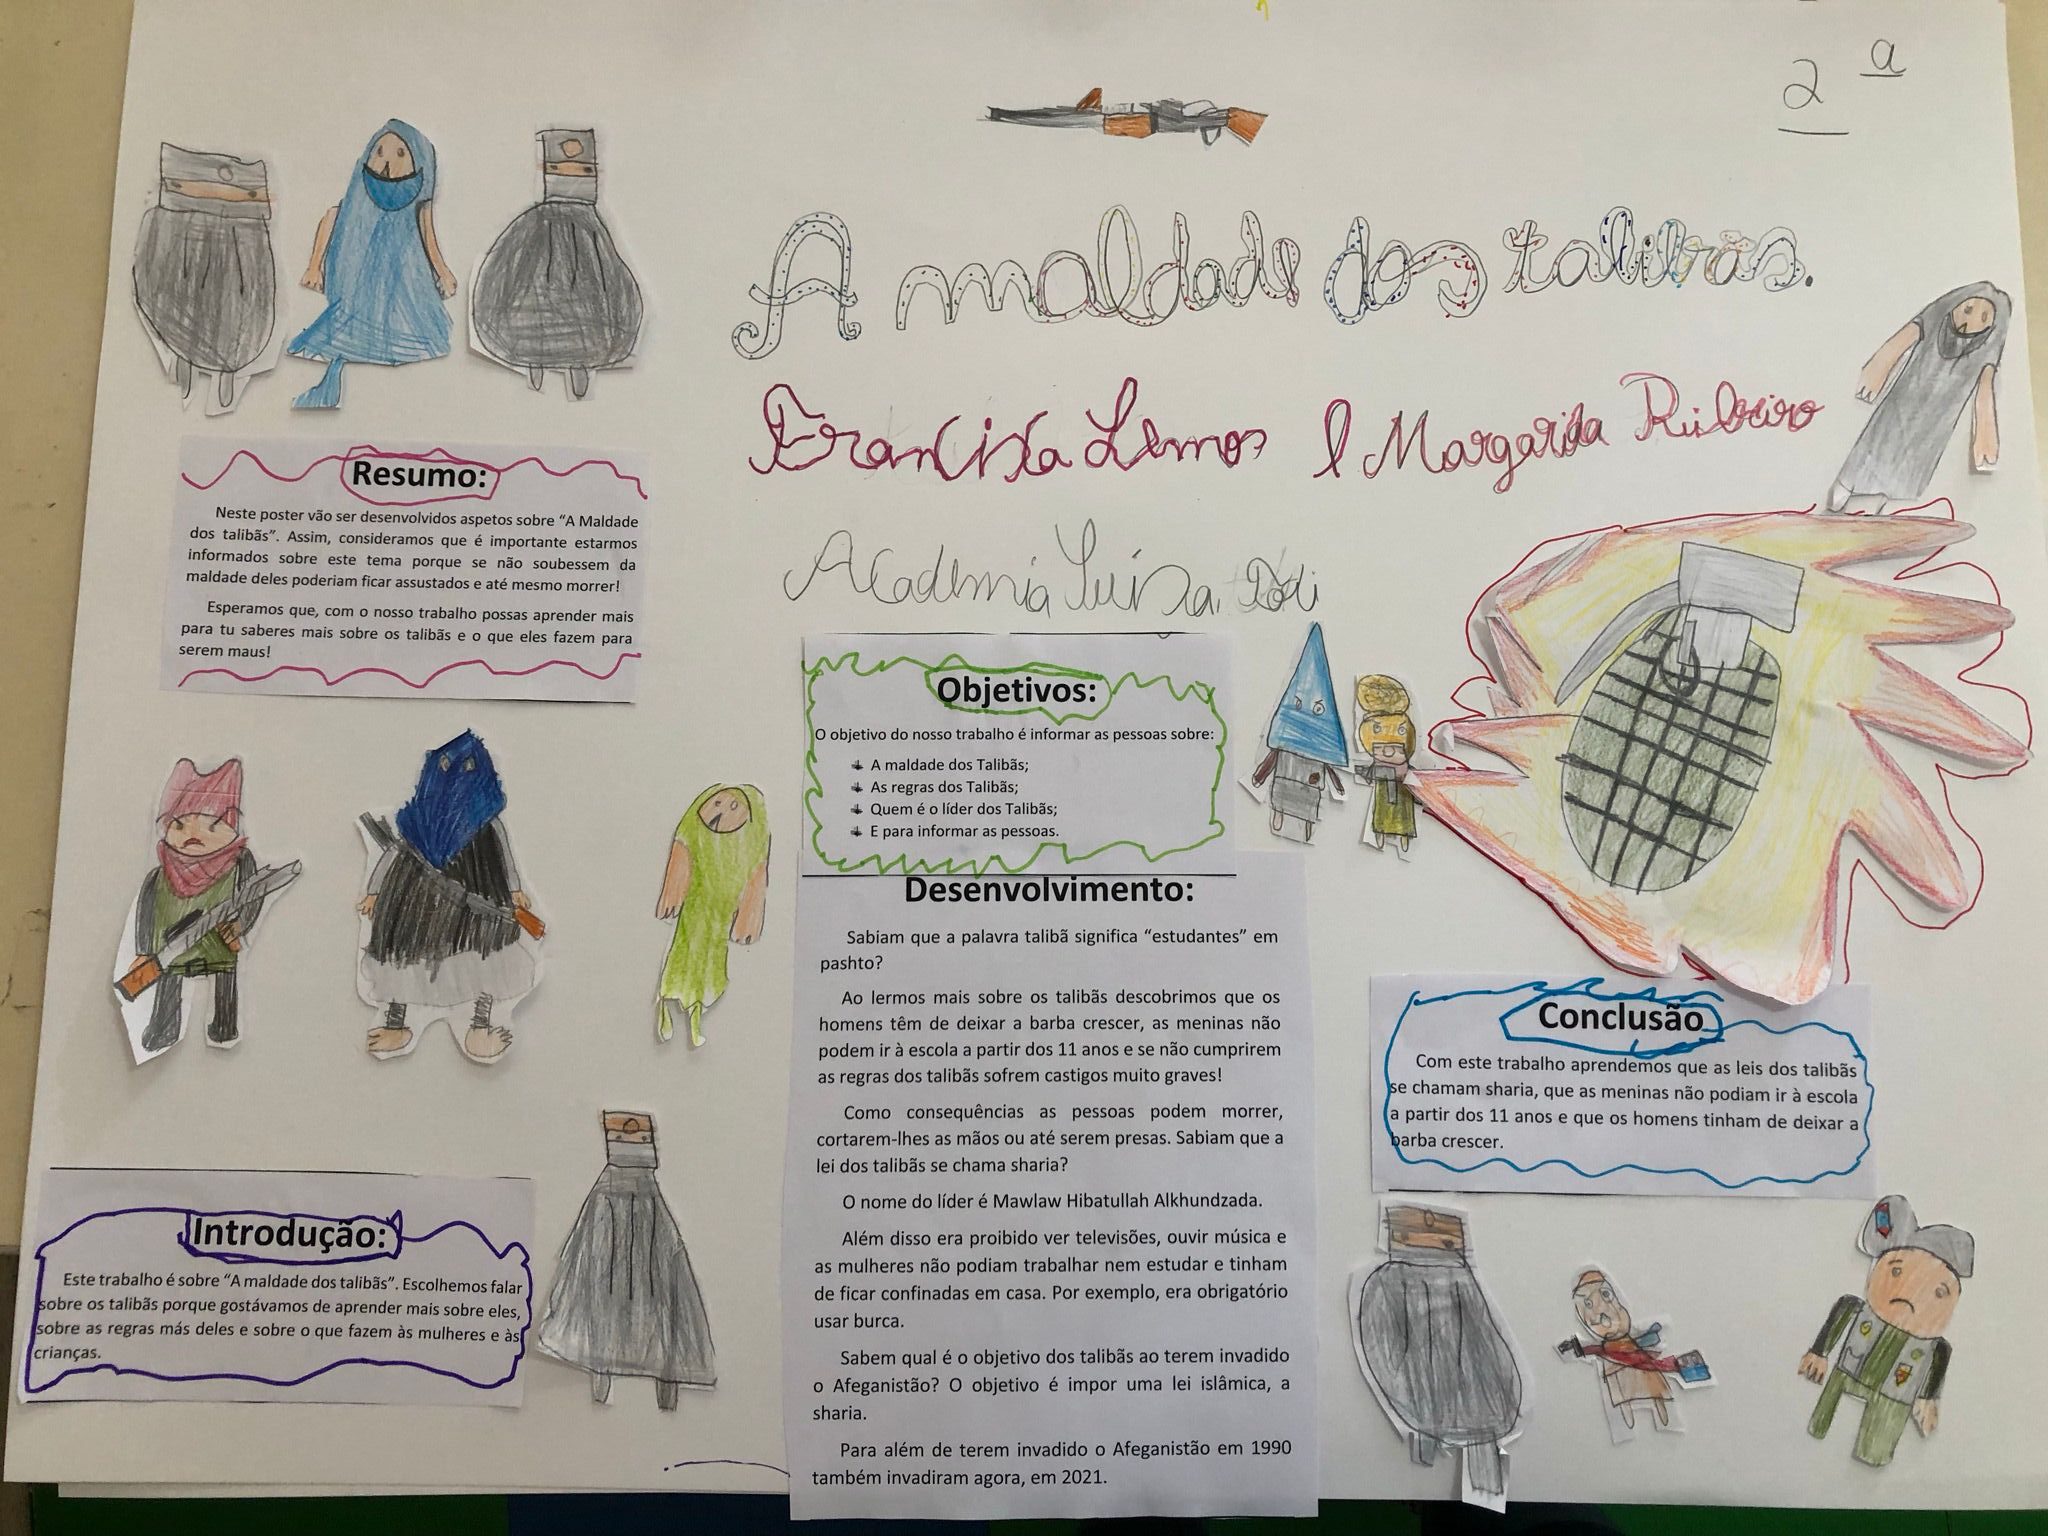 2ª
A maldade dos talibãs.
Francisca Lemos e Margarida Ribeiro
Academia Luísa Todi
Resumo:
Neste poster vão ser desenvolvidos aspetos sobre “A Maldade
dos talibãs”. Assim, consideramos que é importante estarmos
informados sobre este tema porque se não soubessem da
maldade deles poderiam ficar assustados e até mesmo morrer!
Esperamos que, com o nosso trabalho possas aprender mais
para tu saberes mais sobre os talibãs e o que eles fazem para
serem maus!
Introdução:
Este trabalho é sobre “A maldade dos talibãs”. Escolhemos falar
sobre os talibãs porque gostávamos de aprender mais sobre eles,
sobre as regras más deles e sobre o que fazem às mulheres e às
crianças.
Objetivos:
O objetivo do nosso trabalho é informar as pessoas sobre:
A maldade dos Talibãs;
As regras dos Talibãs;
Quem é o líder dos Talibãs;
E para informar as pessoas.
Desenvolvimento:
Sabiam que a palavra talibã significa “estudantes” em
pashto?
Ao lermos mais sobre os talibãs descobrimos que os
homens têm de deixar a barba crescer, as meninas não
podem ir à escola a partir dos 11 anos e se não cumprirem
as regras dos talibãs sofrem castigos muito graves!
Como consequências as pessoas podem morrer,
cortarem-lhes as mãos ou até serem presas. Sabiam que a
lei dos talibãs se chama sharia?
O nome do líder é Mawlaw Hibatullah Alkhundzada.
Além disso era proibido ver televisões, ouvir música e
as mulheres não podiam trabalhar nem estudar e tinham
de ficar confinadas em casa. Por exemplo, era obrigatório
usar burca.
Sabem qual é o objetivo dos talibãs ao terem invadido
o Afeganistão? O objetivo é impor uma lei islâmica, a
sharia.
Para além de terem invadido o Afeganistão em 1990
também invadiram agora, em 2021.
Conclusão
Com este trabalho aprendemos que as leis dos talibãs
se chamam sharia, que as meninas não podiam ir à escola
a partir dos 11 anos e que os homens tinham de deixar a
barba crescer.